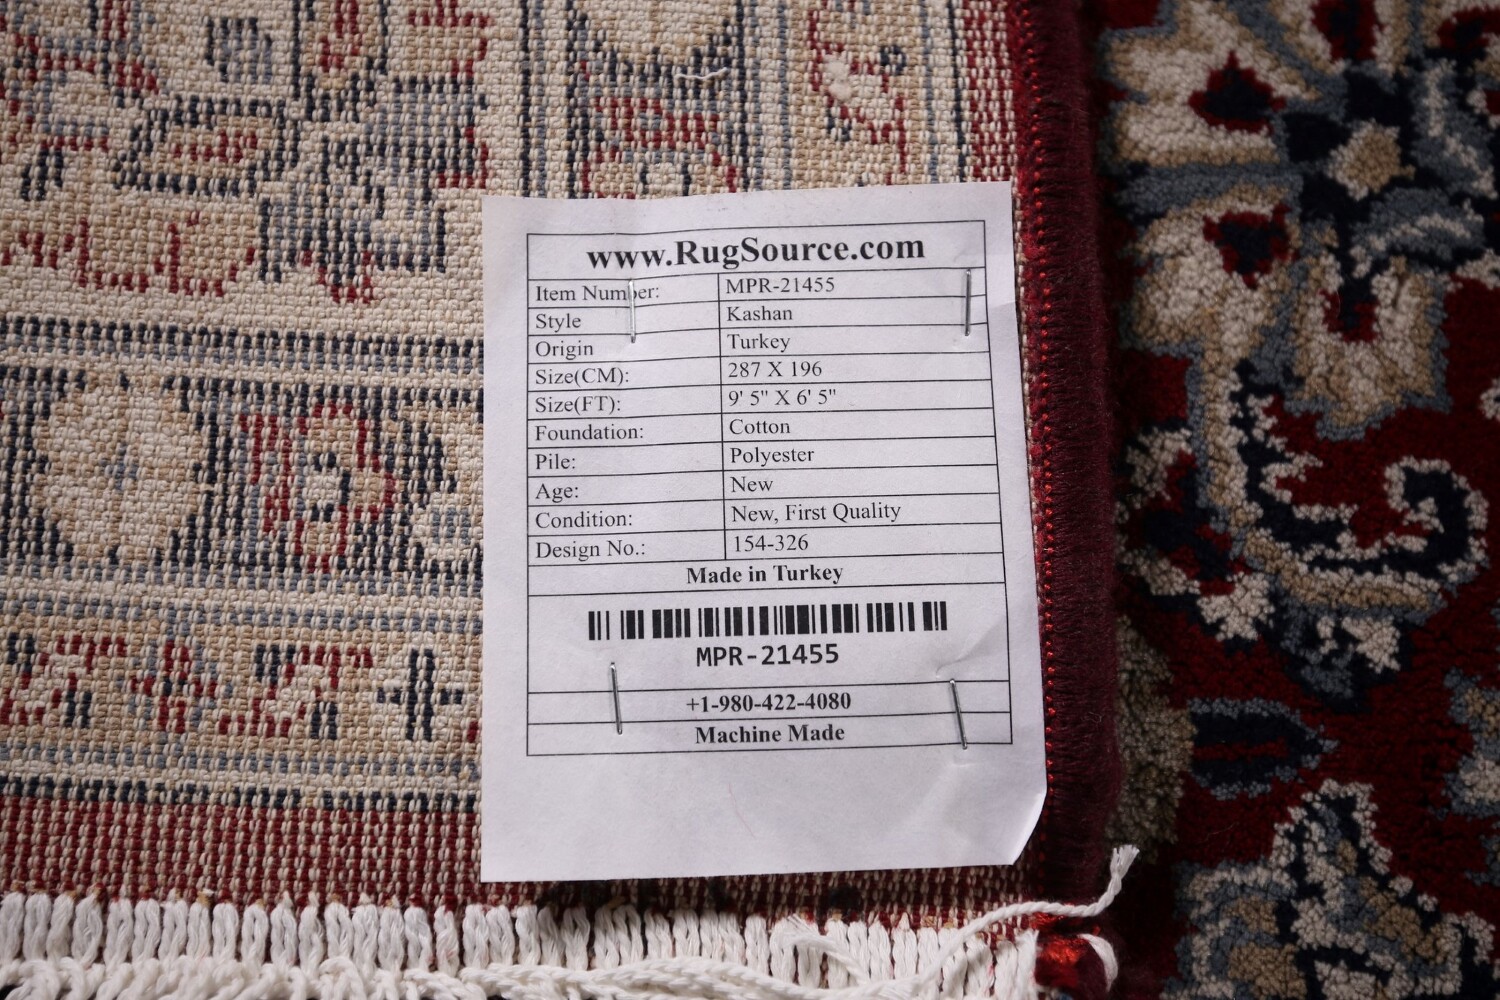 www.RugSource.com
Item Number: MPR-21455
Style Kashan
Origin Turkey
Size(CM): 287 X 196
Size(FT): 9' 5" X 6' 5"
Foundation: Cotton
Pile: Polyester
Age: New
Condition: New, First Quality
Design No.: 154-326
Made in Turkey
MPR-21455
+1-980-422-4080
Machine Made